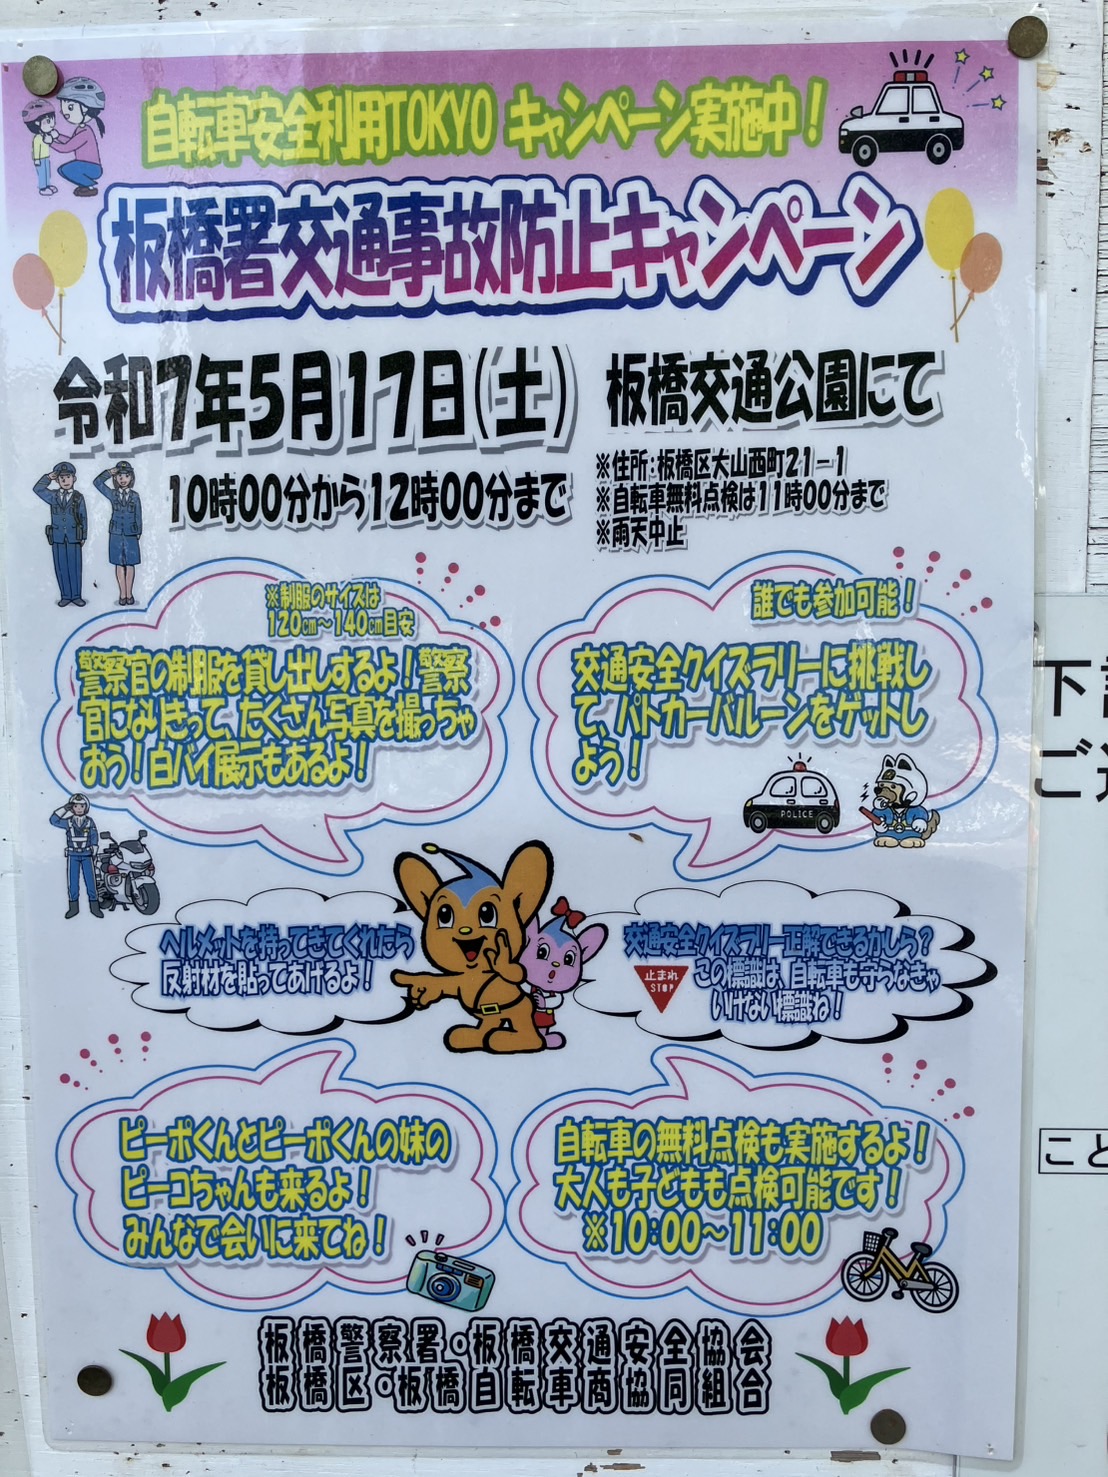 自転車安全利用TOKYO キャンペーン実施中！
板橋署交通事故防止キャンペーン
令和7年5月17日(土)
板橋交通公園にて
10時00分から12時00分まで
※住所：板橋区大山西町21-1
※自転車無料点検は11時00分まで
※雨天中止
※制服のサイズは
120cm～140cm目安
警察官の制服を貸し出しするよ！警察
官になりきって、たくさん写真を撮っちゃ
おう！白バイ展示もあるよ！
誰でも参加可能！
交通安全クイズラリーに挑戦し
て、パトカーバルーンをゲットし
よう！
POLICE
ヘルメットを持ってきてくれたら
反射材を貼ってあげるよ！
交通安全クイズラリー正解できるかしら？
この標識は、自転車も守らなきゃ
いけない標識ね！
止まれ
STOP
ピーポくんとピーポくんの妹の
ピーコちゃんも来るよ！
みんなで会いに来てね！
自転車の無料点検も実施するよ！
大人も子どもも点検可能です！
※10:00～11:00
板橋警察署。板橋交通安全協会
板橋区。板橋自転車商協同組合
下
ご
こと